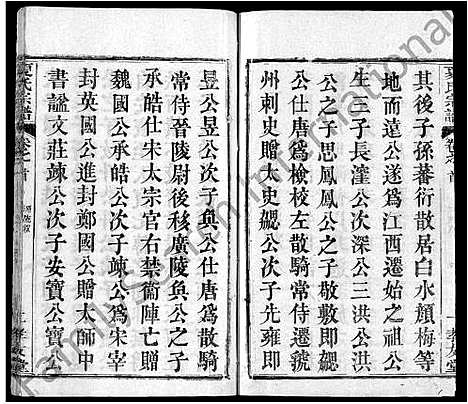 其後子孫蕃衍散居白水顏梅等
地而遠公遂爲江西遷始之祖公
生三子長瀍公次深公三洪公洪
公之子思鳳鳳公之子敬敏即勰
公仕唐爲左散騎常侍遷虢
州刺史大史勰公次子先雍即
昱公昱公次子與公仕唐爲散騎
常侍晉陵尉後移廣陵與公之子
承皓仕宋太宗官右禁衞陣亡贈
魏國公承皓公次子竦公爲宋宰
封英國公進封鄭國公贈太師中
書諡文莊竦公次子安寶公寶公
夏氏宗譜 卷之首
夏氏宗譜 卷之首
Family Search International